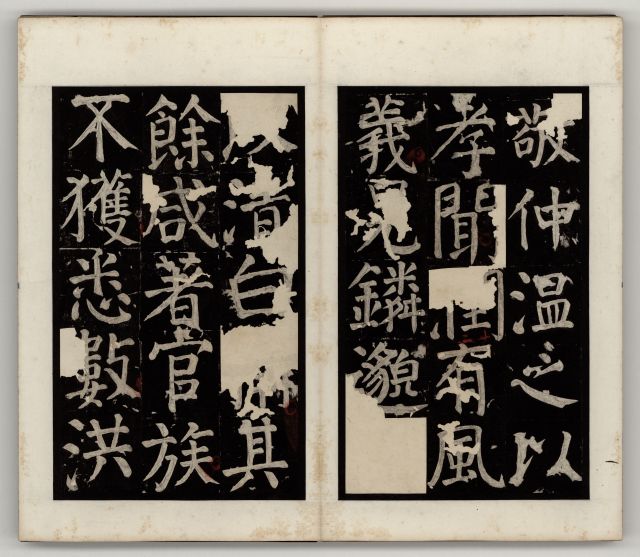 敬仲温之以
孝聞閏有風
義見鏻邈
清白其
餘咸著官族
不獲悉數洪